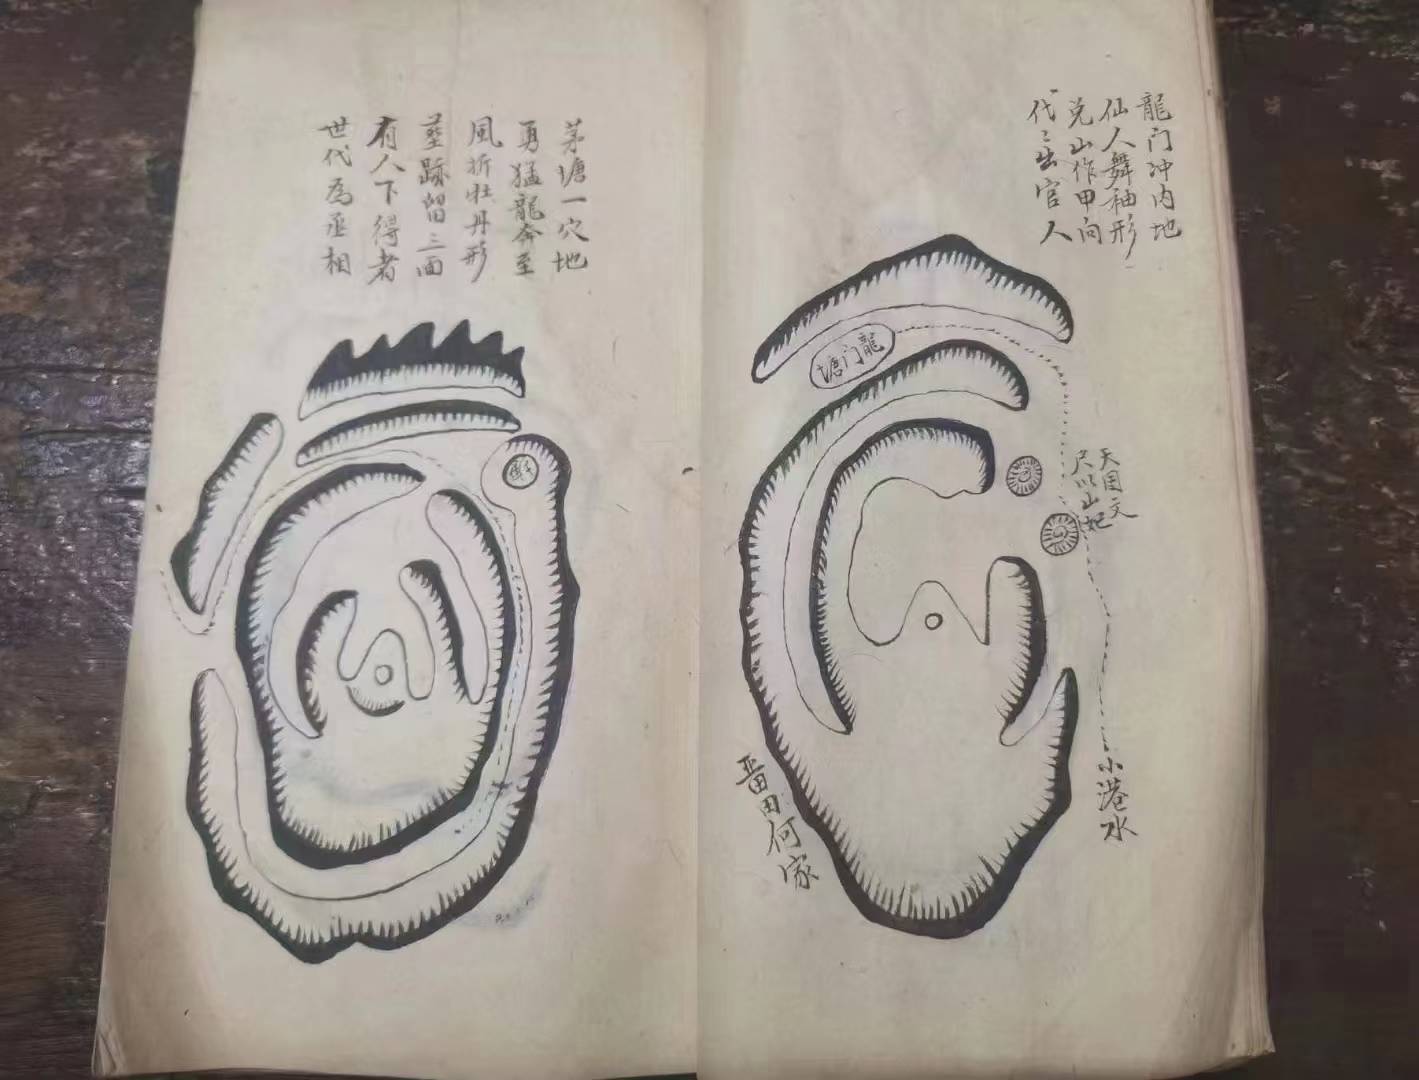 龍门冲内地
仙人舞袖形
兑山作甲向
代〻出官人
龍门塘
天因文
尺以山妃
小港水
番田何家
茅塘一穴地
勇猛龍奔至
風折牡丹形
墓跡留三面
有人下得者
世代為丞相